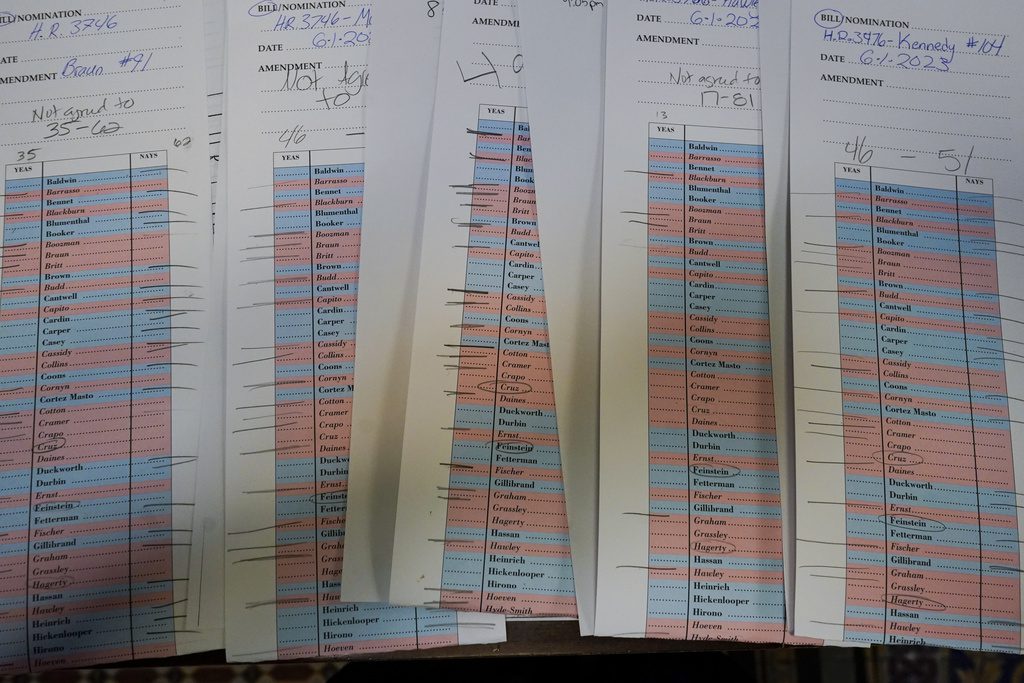 BILL/NOMINATION
H.R. 3746
ATE
AMENDMENT Braun #91
Not agreed to
35-62
35
62
YEAS
NAYS
Baldwin
Barrasso
Bennet
Blackburn
Blumenthal
Booker
Boozman
Braun
Britt
Brown
Budd
Cantwell
Capito
Cardin
Carper
Casey
Cassidy
Collins
Coons
Cornyn
Cortez Masto
Cotton
Cramer
Crapo
Cruz
Daines
Duckworth
Durbin
Ernst
Feinstein
Fetterman
Fischer
Gillibrand
Graham
Grassley
Hagerty
Hassan
Hawley
Heinrich
Hickenlooper
Hirono
Hoeven
BILL/NOMINATION
H.R. 3746-
DATE 6-1-202
AMENDMENT
Not Agre
to
46
YEAS
Baldwin
Barrasso
Bennet
Blackburn
Blumenthal
Booker
Boozman
Braun
Britt
Brown
Budd
Cantwell
Capito
Cardin
Carper
Casey
Cassidy
Collins
Coons
Cornyn
Cortez M
Cotton
Cramer
Crapo
Cruz
Daines
Duckw
Durbin
Ernst
Feinst
Fetter
Fische
Gillib
Grah
Grass
Hage
Hass
Haw
Heinrich
Hickenlooper
Hirono
8
DATE
AMENDM
YEAS
Bal
Bar
Ben
Blac
Blum
Book
Booz
Braun
Britt
Brown
Budd
Cantw
Capito
Cardin
Carper
Casey
Cassidy
Collins
Coons
Cornyn
Cortez Mas
Cotton
Cramer
Crapo
Cruz
Daines
Duckworth
Durbin
Ernst
Feinstein
Fetterman
Fischer
Gillibrand
Graham
Grassley
Hagerty
Hassan
Hawley
Heinrich
Hickenlooper
Hirono
Hoeven
Hyde-Smith
DATE 6-1-202
AMENDMENT
Not agreed to
17-81
13
YEAS
Baldwin
Barrasso
Bennet
Blackburn
Blumenthal
Booker
Boozman
Braun
Britt
Brown
Budd
Cantwell
Capito
Cardin
Carper
Casey
Cassidy
Collins
Coons
Cornyn
Cortez Masto
Cotton
Cramer
Crapo
Cruz
Daines
Duckworth
Durbin
Ernst
Feinstein
Fetterman
Fischer
Gillibrand
Graham
Grassley
Hagerty
Hassan
Hawley
Heinrich
Hickenlooper
Hirono
Hoeven
Hyde-Smith
BILL/NOMINATION
H.R.3476-Kennedy #104
DATE 6-1-2023
AMENDMENT
46 - 51
YEAS
NAYS
Baldwin
Barrasso
Bennet
Blackburn
Blumenthal
Booker
Boozman
Braun
Britt
Brown
Budd
Cantwell
Capito
Cardin
Carper
Casey
Cassidy
Collins
Coons
Cornyn
Cortez Masto
Cotton
Cramer
Crapo
Cruz
Daines
Duckworth
Durbin
Ernst
Feinstein
Fetterman
Fischer
Gillibrand
Graham
Grassley
Hagerty
Hassan
Hawley
Heinrich